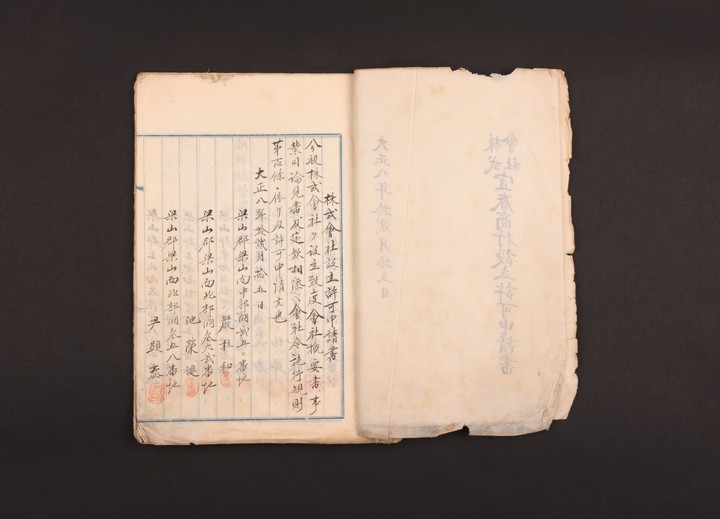 株式會社
宜春商行設立許可申請書
大正八年拾貳月拾五日
株式會社設立許可申請書
今般株式會社ヲ設立致度會社概要書事
業目論見書及定款相添ヘ會社令施行規則
依リ及許可申請候也
大正八年拾貳月拾五日
梁山郡梁山面中部洞貳五〇番地
嚴柱和
梁山郡梁山面北部洞叁六貳番地
池榮
梁山郡梁山面北部洞叁五八番地
尹顯泰